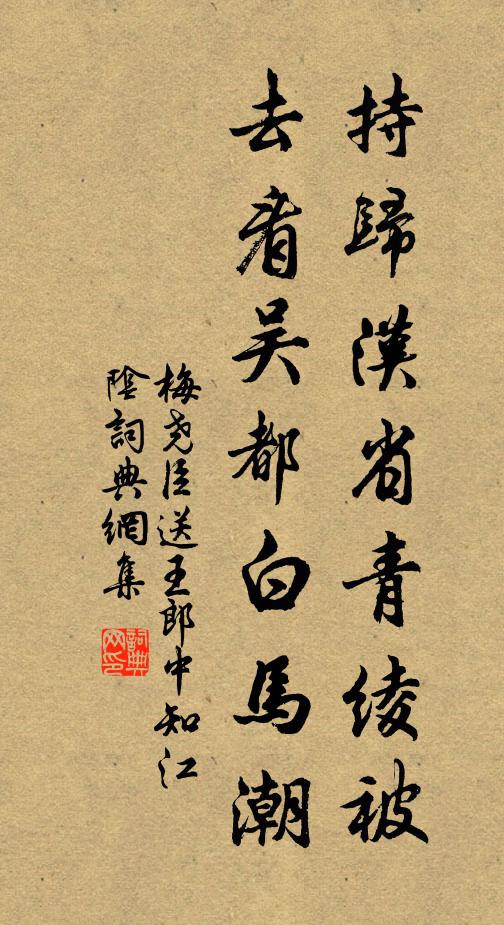 持歸漢省青綾被
去看吳都白馬潮
梅尭臣送王郎中知江
陰詞典網集
詞典
网印